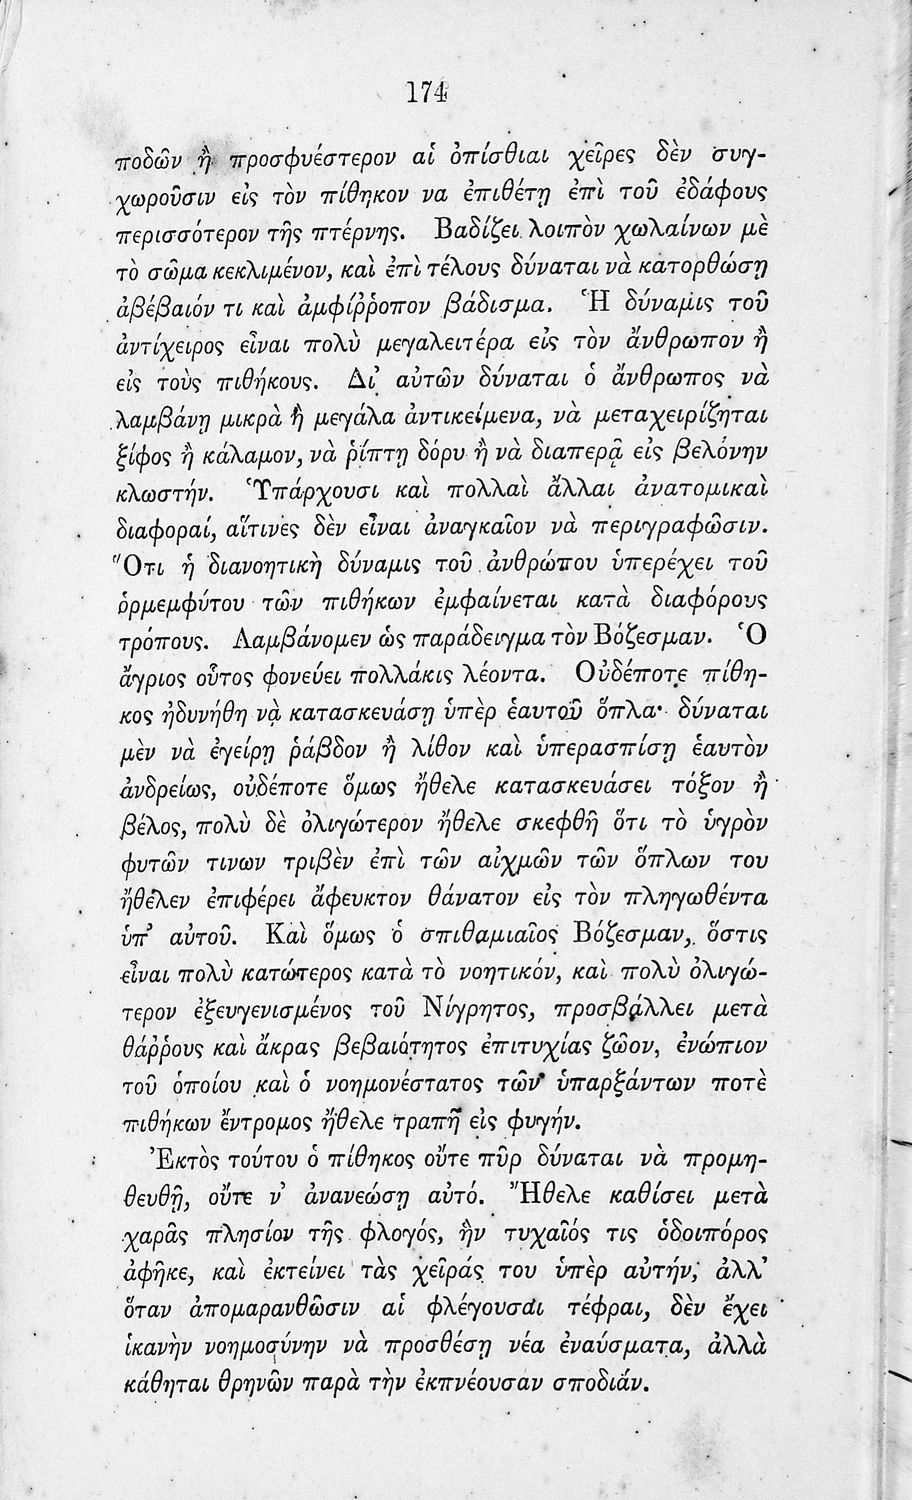 174
ποδῶν ἢ προσφυέστερον αἱ ὀπίσθιαι χεῖρες δὲν συγ-
χωροῦσιν εἰς τὸν πίθηκον να ἐπιθέτῃ ἐπὶ τοῦ ἐδάφους
περισσότερον τῆς πτέρνης. Βαδίζει λοιπὸν χωλαίνων μὲ
τὸ σῶμα κεκλιμένον, καὶ ἐπὶ τέλους δύναται νὰ κατορθώσῃ
ἀβέβαιόν τι καὶ ἀμφίῤῥοπον βάδισμα. Ἡ δύναμις τοῦ
ἀντίχειρος εἶναι πολὺ μεγαλειτέρα εἰς τὸν ἄνθρωπον ἢ
εἰς τοὺς πιθήκους. Δι' αὐτῶν δύναται ὁ ἄνθρωπος νὰ
λαμβάνῃ μικρὰ ἢ μεγάλα ἀντικείμενα, νὰ μεταχειρίζηται
ξίφος ἢ κάλαμον, νὰ ῥίπτῃ δόρυ ἢ νὰ διαπερᾷ εἰς βελόνην
κλωστήν. Ὑπάρχουσι καὶ πολλαὶ ἄλλαι ἀνατομικαὶ
διαφοραί, αἵτινες δὲν εἶναι ἀναγκαῖον νὰ περιγραφῶσιν.
Ὅτι ἡ διανοητικὴ δύναμις τοῦ ἀνθρώπου ὑπερέχει τοῦ
ὁρμεμφύτου τῶν πιθήκων ἐμφαίνεται κατὰ διαφόρους
τρόπους. Λαμβάνομεν ὡς παράδειγμα τὸν Βόζεσμαν. Ὁ
ἄγριος οὗτος φονεύει πολλάκις λέοντα. Οὐδέποτε πίθη-
κος ἠδυνήθη νὰ κατασκευάσῃ ὑπὲρ ἑαυτοῦ ὅπλα· δύναται
μὲν νὰ ἐγείρῃ ῥάβδον ἢ λίθον καὶ ὑπερασπίσῃ ἑαυτὸν
ἀνδρείως, οὐδέποτε ὅμως ἤθελε κατασκευάσει τόξον ἢ
βέλος, πολὺ δὲ ὀλιγώτερον ἤθελε σκεφθῆ ὅτι τὸ ὑγρὸν
φυτῶν τινων τριβὲν ἐπὶ τῶν αἰχμῶν τῶν ὅπλων του
ἤθελεν ἐπιφέρει ἄφευκτον θάνατον εἰς τὸν πληγωθέντα
ὑπ' αὐτοῦ. Καὶ ὅμως ὁ σπιθαμιαῖος Βόζεσμαν, ὅστις
εἶναι πολὺ κατώτερος κατὰ τὸ νοητικόν, καὶ πολὺ ὀλιγώ-
τερον ἐξευγενισμένος τοῦ Νίγρητος, προσβάλλει μετὰ
θάῤῥους καὶ ἄκρας βεβαιότητος ἐπιτυχίας ζῶον, ἐνώπιον
τοῦ ὁποίου καὶ ὁ νοημονέστατος τῶν ὑπαρξάντων ποτὲ
πιθήκων ἔντρομος ἤθελε τραπῆ εἰς φυγήν.
Ἐκτὸς τούτου ὁ πίθηκος οὔτε πῦρ δύναται νὰ προμη-
θευθῇ, οὔτε ν' ἀνανεώσῃ αὐτό. Ἤθελε καθίσει μετὰ
χαρᾶς πλησίον τῆς φλογός, ἣν τυχαῖός τις ὁδοιπόρος
ἀφῆκε, καὶ ἐκτείνει τὰς χεῖράς του ὑπὲρ αὐτήν, ἀλλ'
ὅταν ἀπομαρανθῶσιν αἱ φλέγουσαι τέφραι, δὲν ἔχει
ἱκανὴν νοημοσύνην νὰ προσθέσῃ νέα ἐναύσματα, ἀλλὰ
κάθηται θρηνῶν παρὰ τὴν ἐκπνέουσαν σποδιάν.